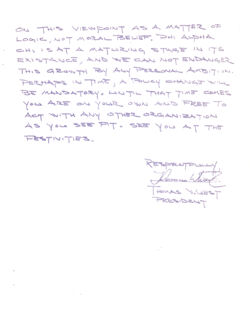 ON THIS VIEWPOINT AS A MATTER OF
LOGIC, NOT MORAL BELIEF, PHI ALPHA
CHI IS AT A MATURING STAGE IN ITS
EXISTANCE, AND WE CAN NOT ENDANGER
THIS GROWTH BY ANY PERSONAL AMBITION.
PERHAPS IN TIME, A POLICY CHANGE WILL
BE MANDATORY. UNTIL THAT TIME COMES
YOU ARE ON YOUR OWN AND FREE TO
ACT WITH ANY OTHER ORGANIZATION
AS YOU SEE FIT. SEE YOU AT THE
FESTIVITIES.
RESPECTFULLY
THOMAS V. WEST
PRESIDENT